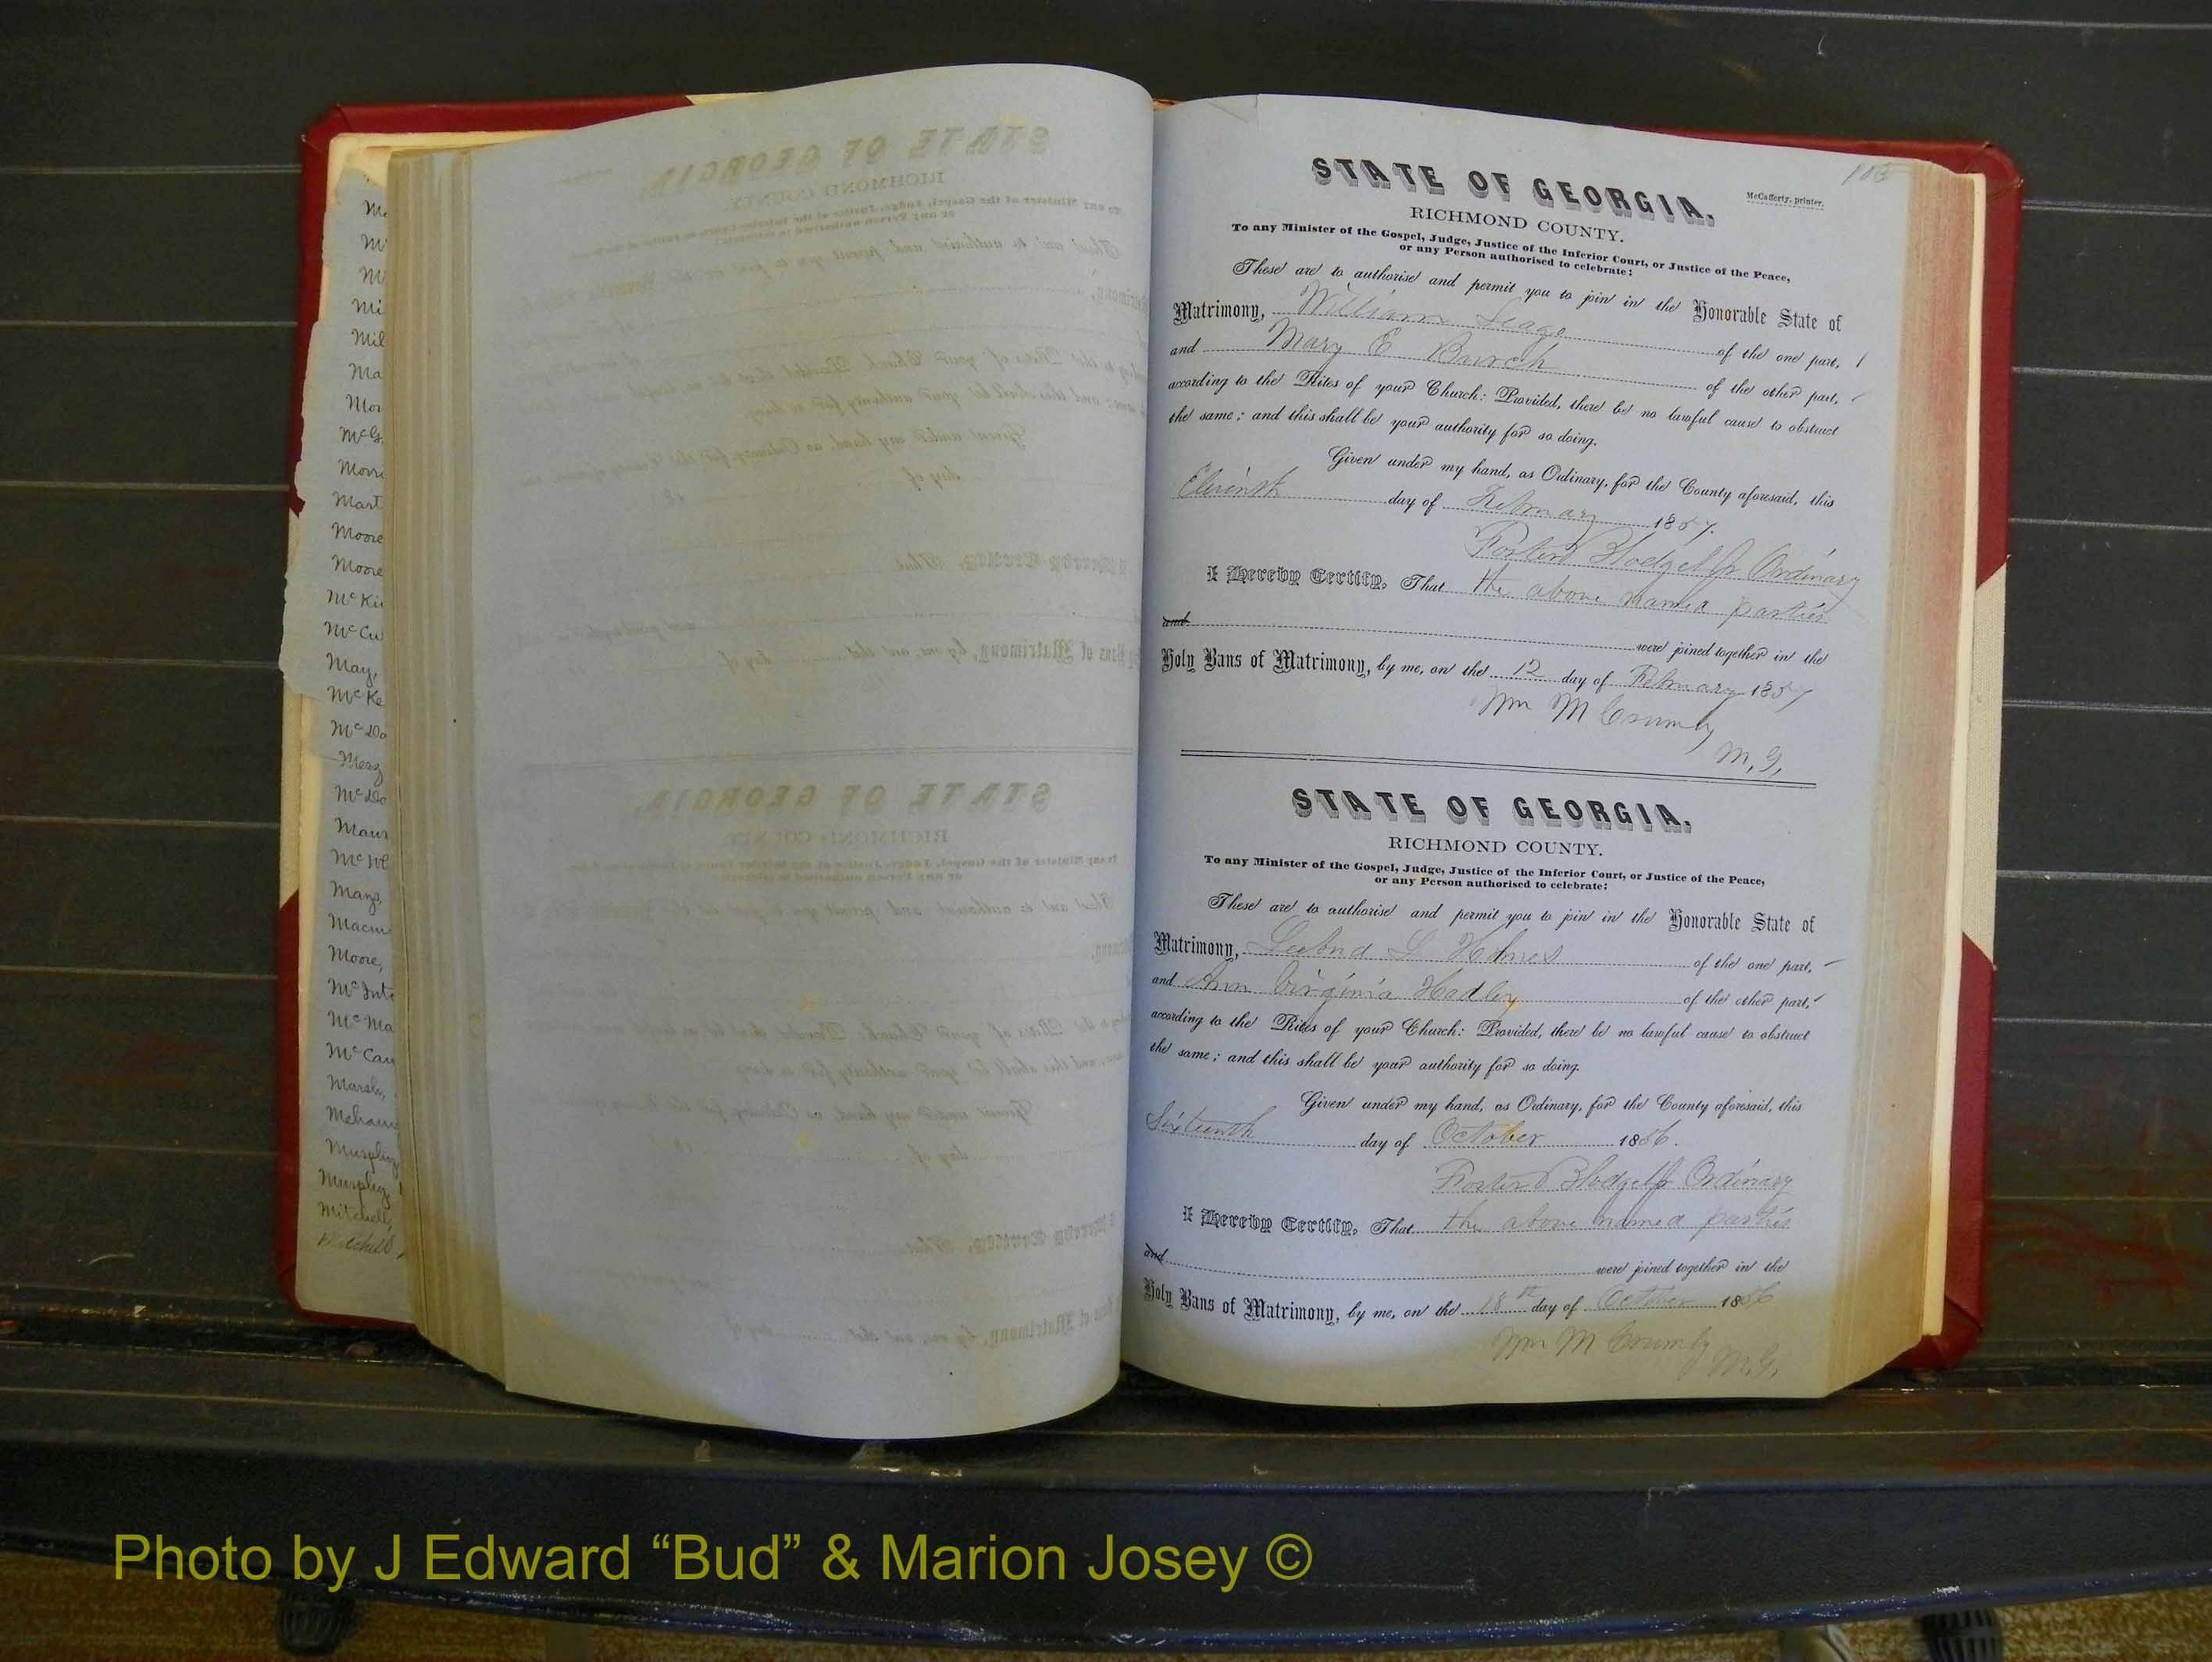 Mil
Ma
Mor
McG
Morri
Mart
Moore
Moore
McKi
McCu
May,
McKe
McDo
Merz
McDo
Maur
Mays,
Moore,
McInt
McMa
McCan
Marsh,
Murphy
Murphy
Mitchell,
Mitchell
McCafferty, printer.
STATE OF GEORGIA,
RICHMOND COUNTY.
To any Minister of the Gospel, Judge, Justice of the Inferior Court, or Justice of the Peace,
or any Person authorised to celebrate:
These are to authorise and permit you to join in the Honorable State of
Matrimony, William Seago of the one part,
and Mary E Burch of the other part,
according to the Rites of your Church: Provided, there be no lawful cause to obstruct
the same; and this shall be your authority for so doing.
Given under my hand, as Ordinary, for the County aforesaid, this
Eleventh day of February 1857.
Foster Blodget Jr Ordinary
I Hereby Certify, That the above named parties
and were joined together in the
Holy Bans of Matrimony, by me, on the 12 day of February 1857
Wm M Crumly
M.G.
STATE OF GEORGIA,
RICHMOND COUNTY.
To any Minister of the Gospel, Judge, Justice of the Inferior Court, or Justice of the Peace,
or any Person authorised to celebrate:
These are to authorise and permit you to join in the Honorable State of
Matrimony, L Holmes of the one part,
and Ann Virginia Hadley of the other part,
according to the Rites of your Church: Provided, there be no lawful cause to obstruct
the same; and this shall be your authority for so doing.
Given under my hand, as Ordinary, for the County aforesaid, this
Sixteenth day of October 1856.
Foster Blodget Jr Ordinary
I Hereby Certify, That the above named parties
and were joined together in the
Holy Bans of Matrimony, by me, on the 18th day of October 1856
Wm M Crumly
M.G.
Photo by J Edward “Bud” & Marion Josey ©